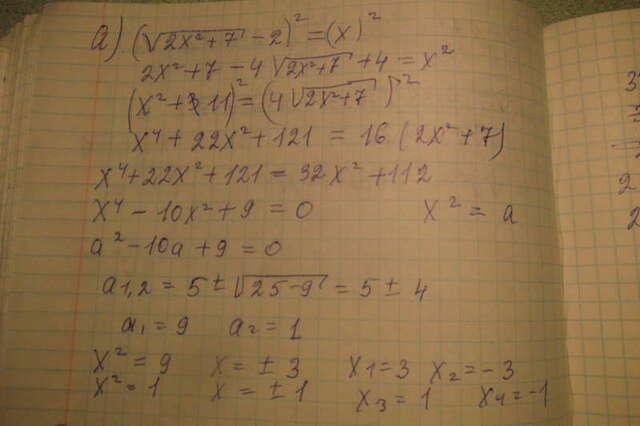 а) (√(2x²+7) - 2)² = (x)²
2x²+7 - 4√(2x²+7) + 4 = x²
(x²+11)² = (4√(2x²+7))²
x⁴ + 22x² + 121 = 16(2x² + 7)
x⁴+22x²+121 = 32x² + 112
x⁴ - 10x² + 9 = 0 x² = a
a² - 10a + 9 = 0
a1,2 = 5 ± √(25-9) = 5 ± 4
a₁ = 9 a₂ = 1
x² = 9 x = ± 3 x₁ = 3 x₂ = -3
x² = 1 x = ± 1 x₃ = 1 x₄ = -1